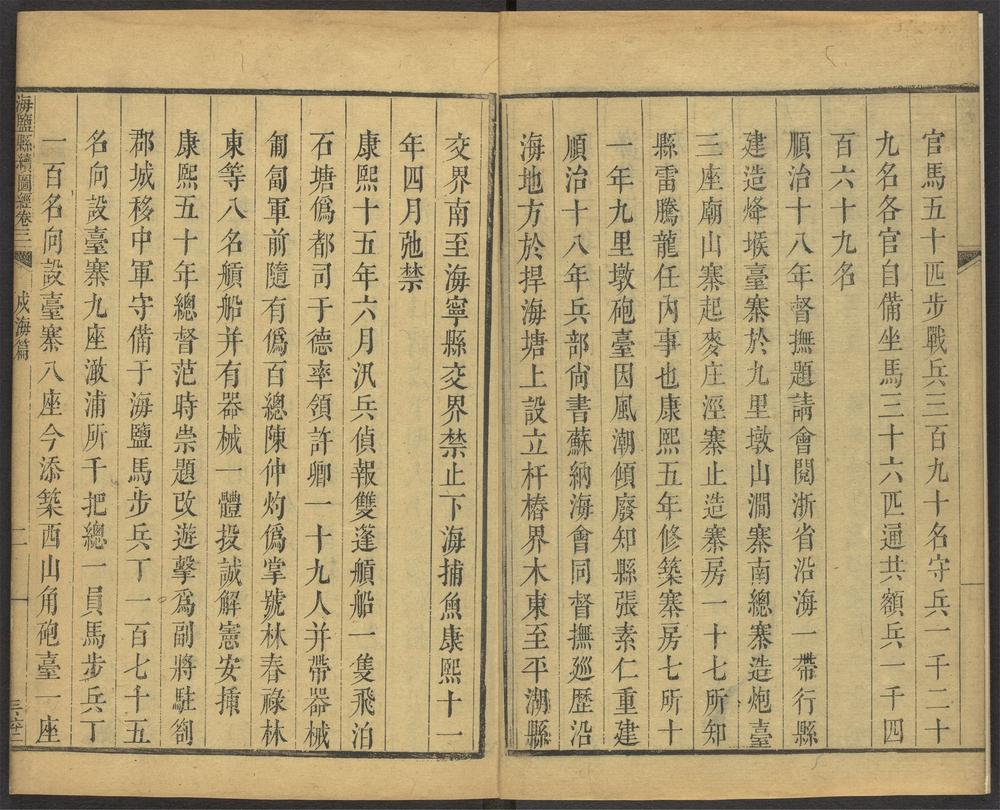 官馬五十匹步戰兵三百九十名守兵一千二十
九名各官自備坐馬三十六匹通共額兵一千四
百六十九名
順治十八年督撫題請會閱浙省沿海一帶行縣
建造烽堠臺寨於九里墩山澗寨南總寨造炮臺
三座廟山寨起麥庄涇寨止造寨房一十七所知
縣雷騰龍任內事也康熙五年修築寨房七所十
一年九里墩砲臺因風潮傾廢知縣張素仁重建
順治十八年兵部尙書蘇納海會同督撫廵歷沿
海地方於捍海塘上設立杆樁界木東至平湖縣
交界南至海寧縣交界禁止下海捕魚康熙十一
年四月弛禁
康熙十五年六月汛兵偵報雙篷艍船一隻飛泊
石塘僞都司于德率領許卿一十九人并帶器械
匍匐軍前隨有僞百總陳仲灼僞掌號林春祿林
東等八名艍船并有器械一體投誠解憲安揷
康熙五十年總督范時崇題改遊擊爲副將駐劄
郡城移中軍守備于海鹽馬步兵丁一百七十五
名向設臺寨九座澉浦所千把總一員馬步兵丁
一百名向設臺寨八座今添築西山角砲臺一座
海鹽縣續圖經卷三
戍海篇
二